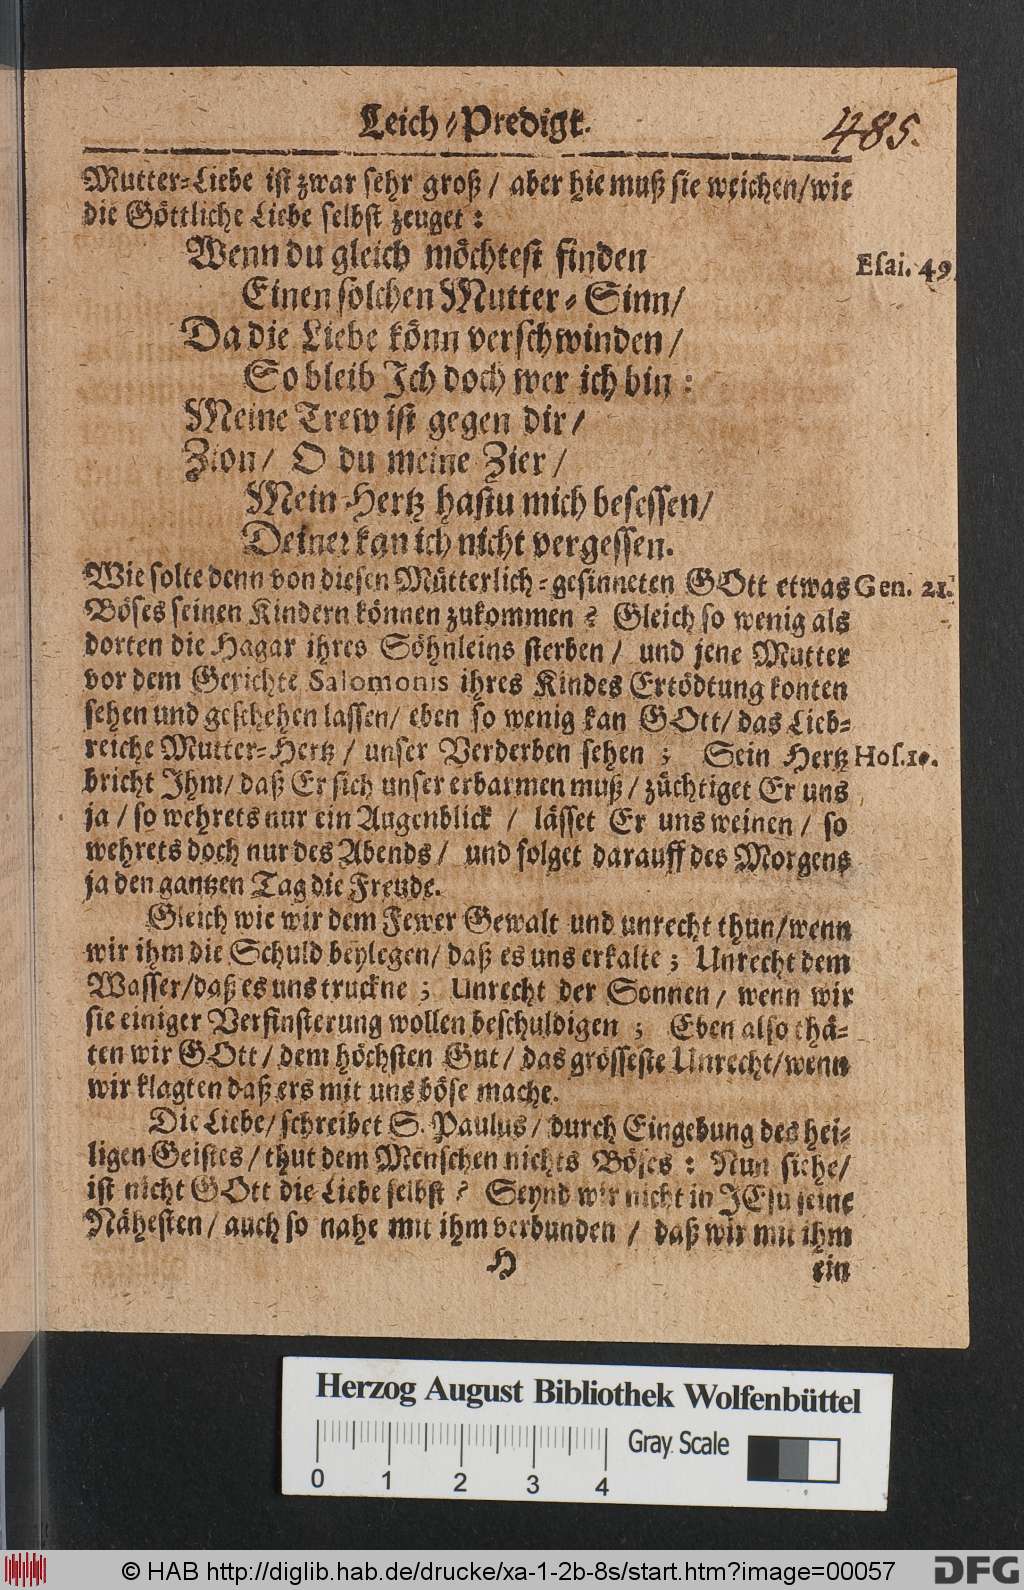 Leich-Predigt.
485.
Mutter-Liebe ist zwar sehr groß / aber hie muß sie weichen/wie
die Göttliche Liebe selbst zeuget:
Wenn du gleich möchtest finden
Esai. 49.
Einen solchen Mutter-Sinn/
Da die Liebe könn verschwinden /
So bleib Ich doch wer ich bin:
Meine Trew ist gegen dir /
Zion / O du meine Zier /
Mein Hertz hastu mich besessen/
Deiner kan ich nicht vergessen.
Wie solte denn von diesen Mütterlich-gesinneten GOtt etwas
Gen. 21.
Böses seinen Kindern können zukommen? Gleich so wenig als
dorten die Hagar ihres Söhnleins sterben / und jene Mutter
vor dem Gerichte Salomonis ihres Kindes Ertödtung konten
sehen und geschehen lassen/ eben so wenig kan GOtt/ das Lieb-
reiche Mutter-Hertz / unser Verderben sehen; Sein Hertz
Hos. 10.
bricht Ihm/ daß Er sich unser erbarmen muß / züchtiget Er uns
ja / so wehrets nur ein Augenblick / lässet Er uns weinen / so
wehrets doch nur des Abends / und folget darauff des Morgens
ja den gantzen Tag die Freude.
Gleich wie wir dem Fewer Gewalt und unrecht thun/wenn
wir ihm die Schuld beylegen/ daß es uns erkalte; Unrecht dem
Wasser/daß es uns truckne; Unrecht der Sonnen / wenn wir
sie einiger Verfinsterung wollen beschuldigen; Eben also thä-
ten wir GOtt / dem höchsten Gut / das grösseste Unrecht/wenn
wir klagten daß ers mit uns böse mache.
Die Liebe/ schreibet S. Paulus / durch Eingebung des hei-
ligen Geistes / thut dem Menschen nichts Böses: Nun siehe/
ist nicht GOtt die Liebe selbst? Seynd wir nicht in JEsu seine
Nähesten / auch so nahe mit ihm verbunden / daß wir mit ihm
H
ein
Herzog August Bibliothek Wolfenbüttel
Gray Scale
0 1 2 3 4
© HAB http://diglib.hab.de/drucke/xa-1-2b-8s/start.htm?image=00057
DFG